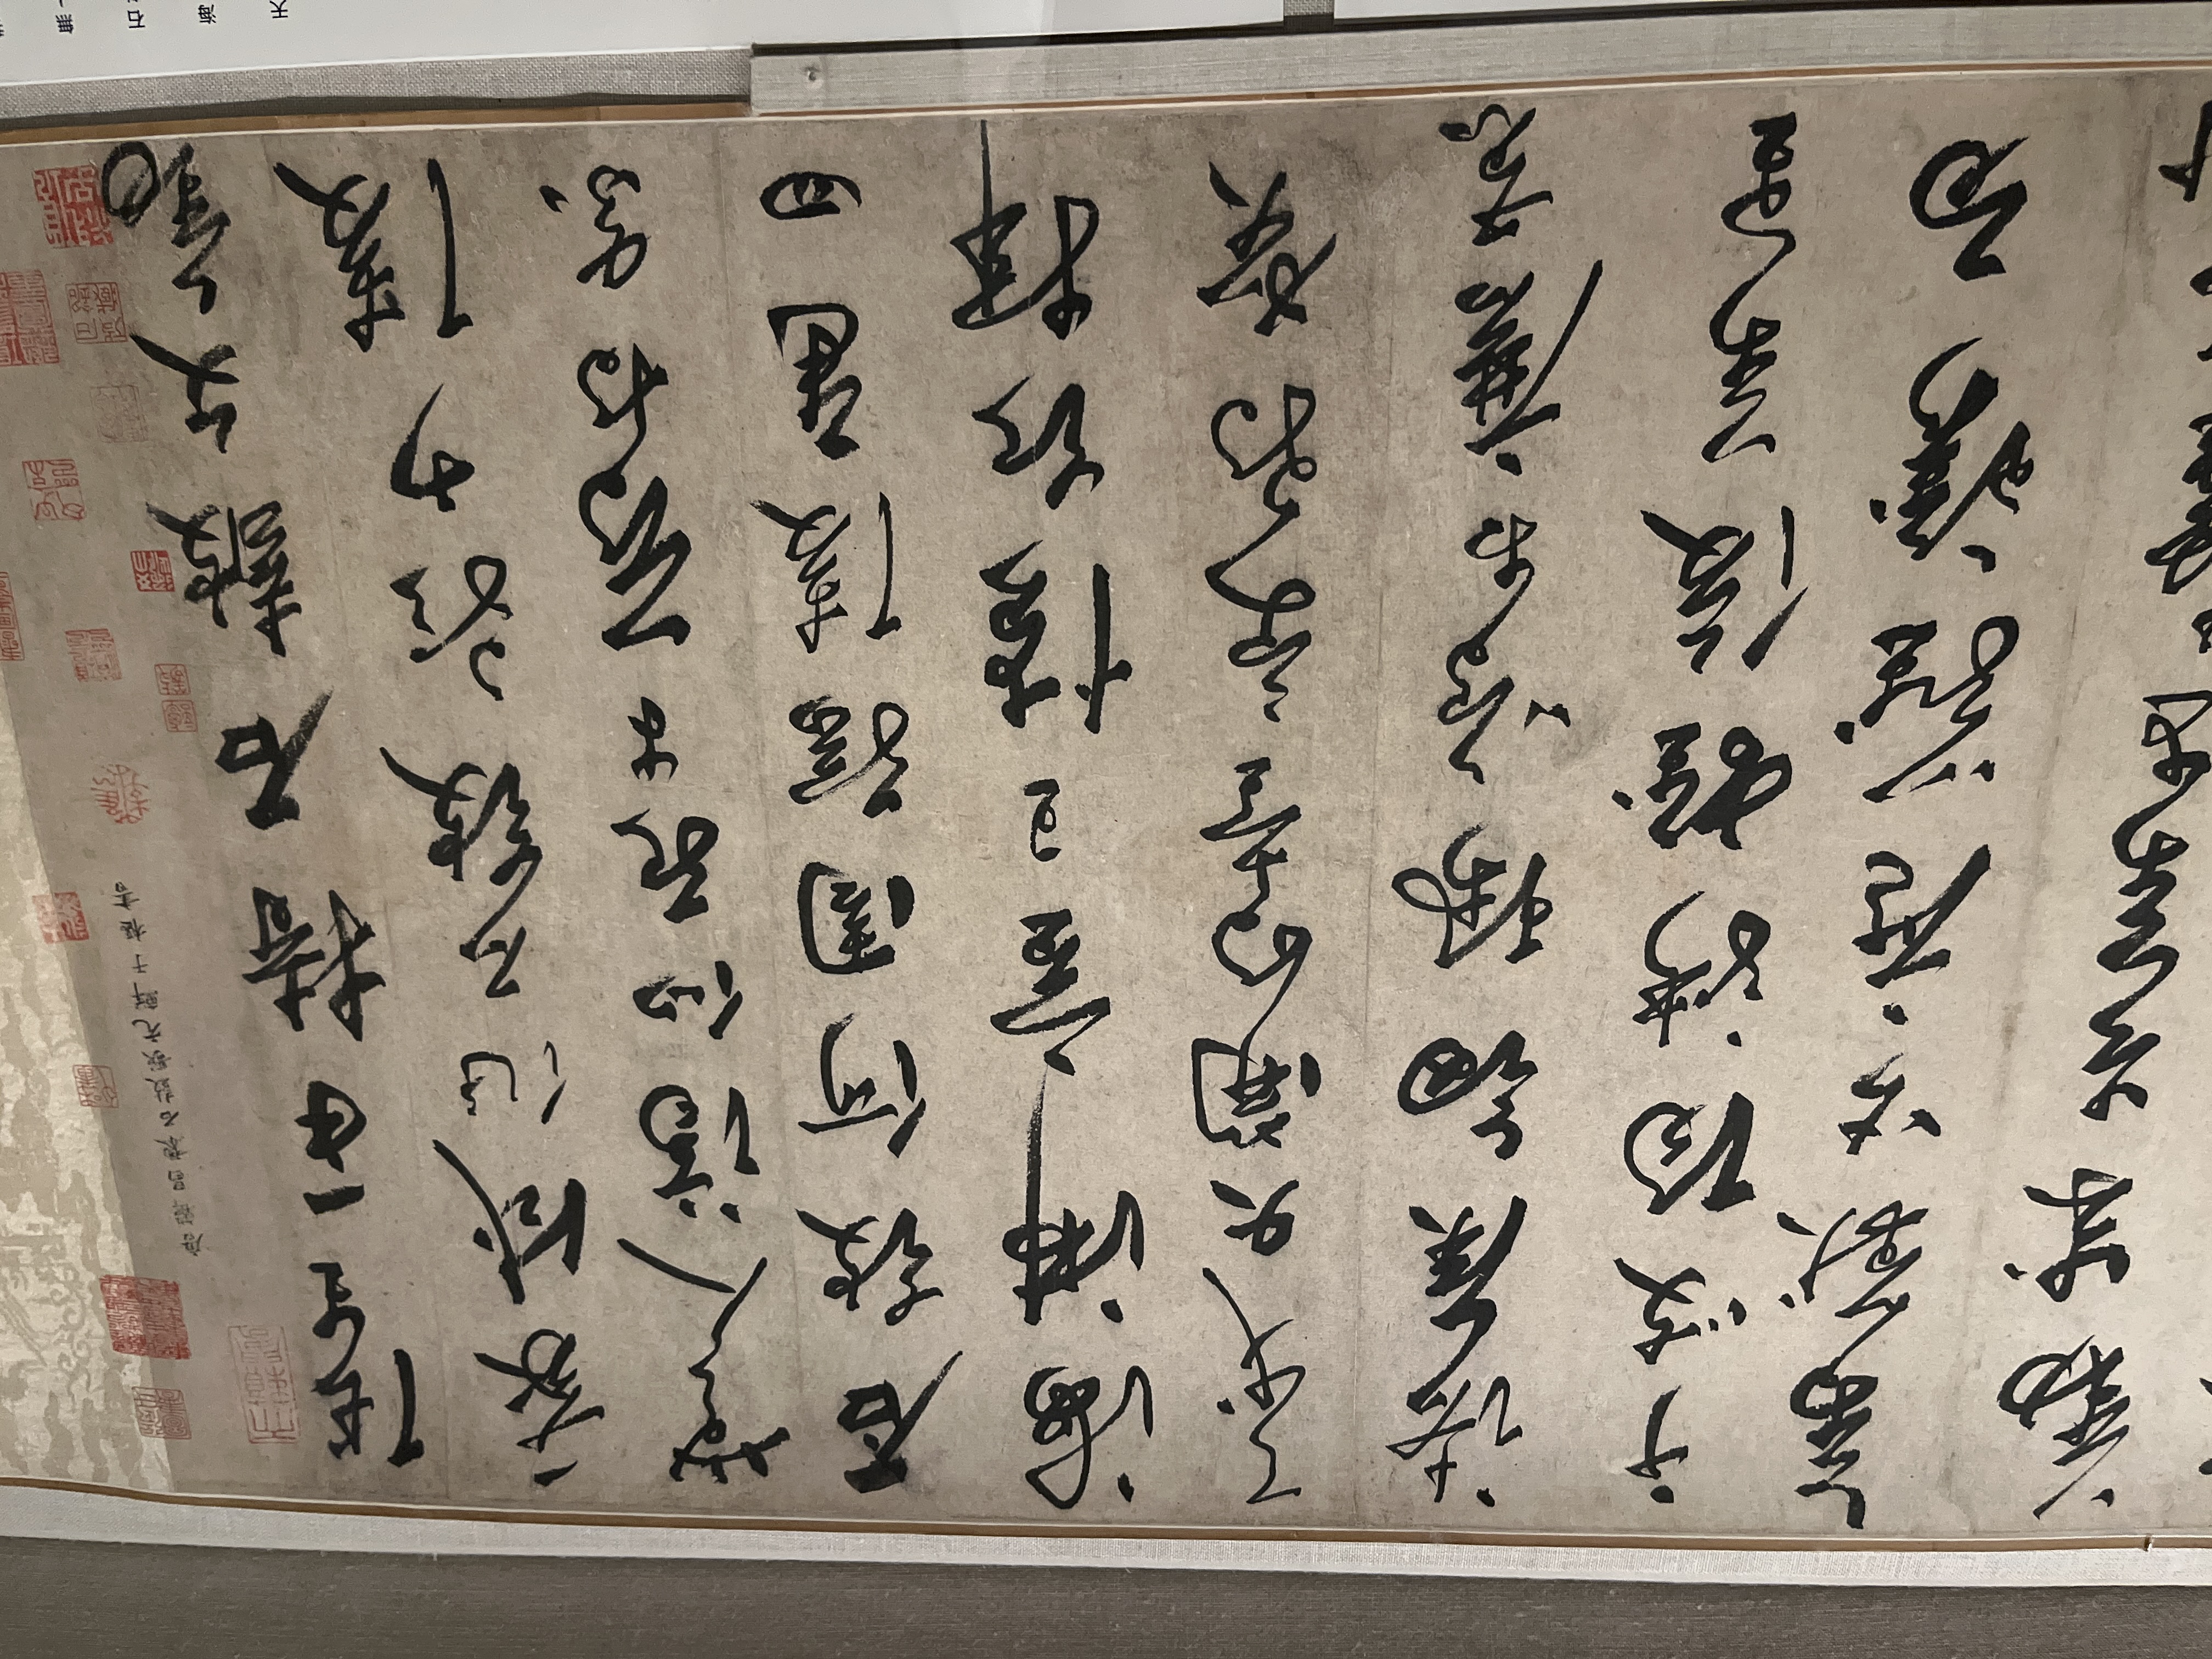 唐韓昌黎石鼓歌元鮮于樞書
張生手持石鼓文勸
我試作石鼓歌少陵
無人謫仙死才薄將奈
石鼓何周綱陵遲四
海沸宣王憤起揮
天戈大開明堂受朝賀
諸侯劍珮鳴相磨蒐
于岐陽騁雄俊萬里
禽獸皆遮羅鐫功
勒成告萬世
天籟閣
無
石
海
天